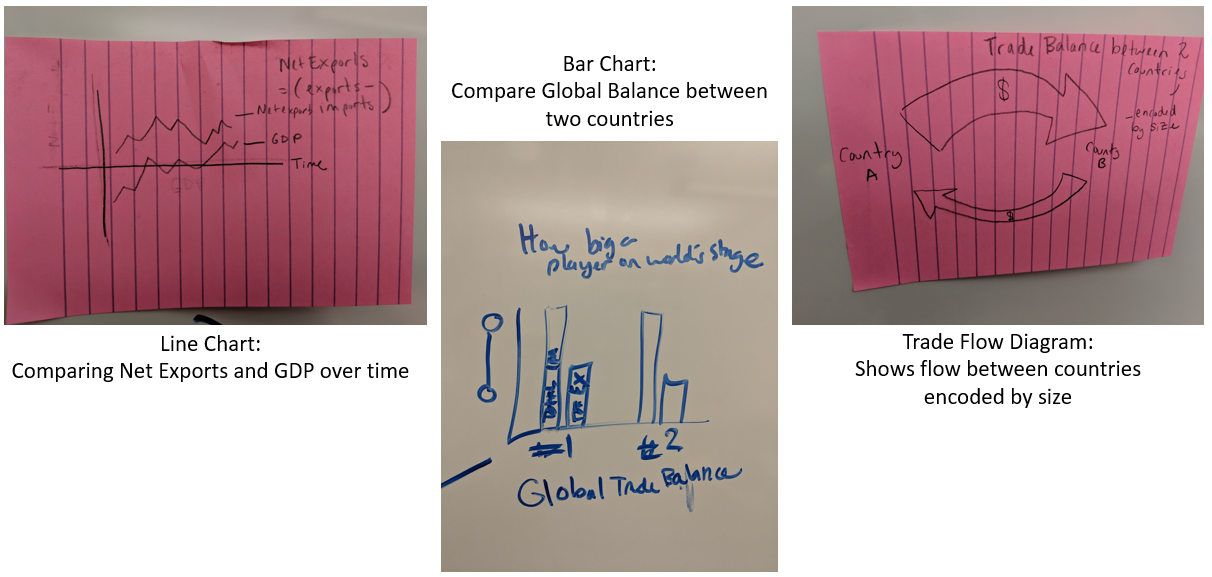 Net Exports
= (exports -
imports)
Net export
GDP
Time
GDP
Line Chart:
Comparing Net Exports and GDP over time
Bar Chart:
Compare Global Balance between
two countries
How big a
player on world's stage
IM
EX
#1
#2
Global Trade Balance
Trade Balance between 2
Countries
- encoded
by size
$
Country
A
B
$
Trade Flow Diagram:
Shows flow between countries
encoded by size